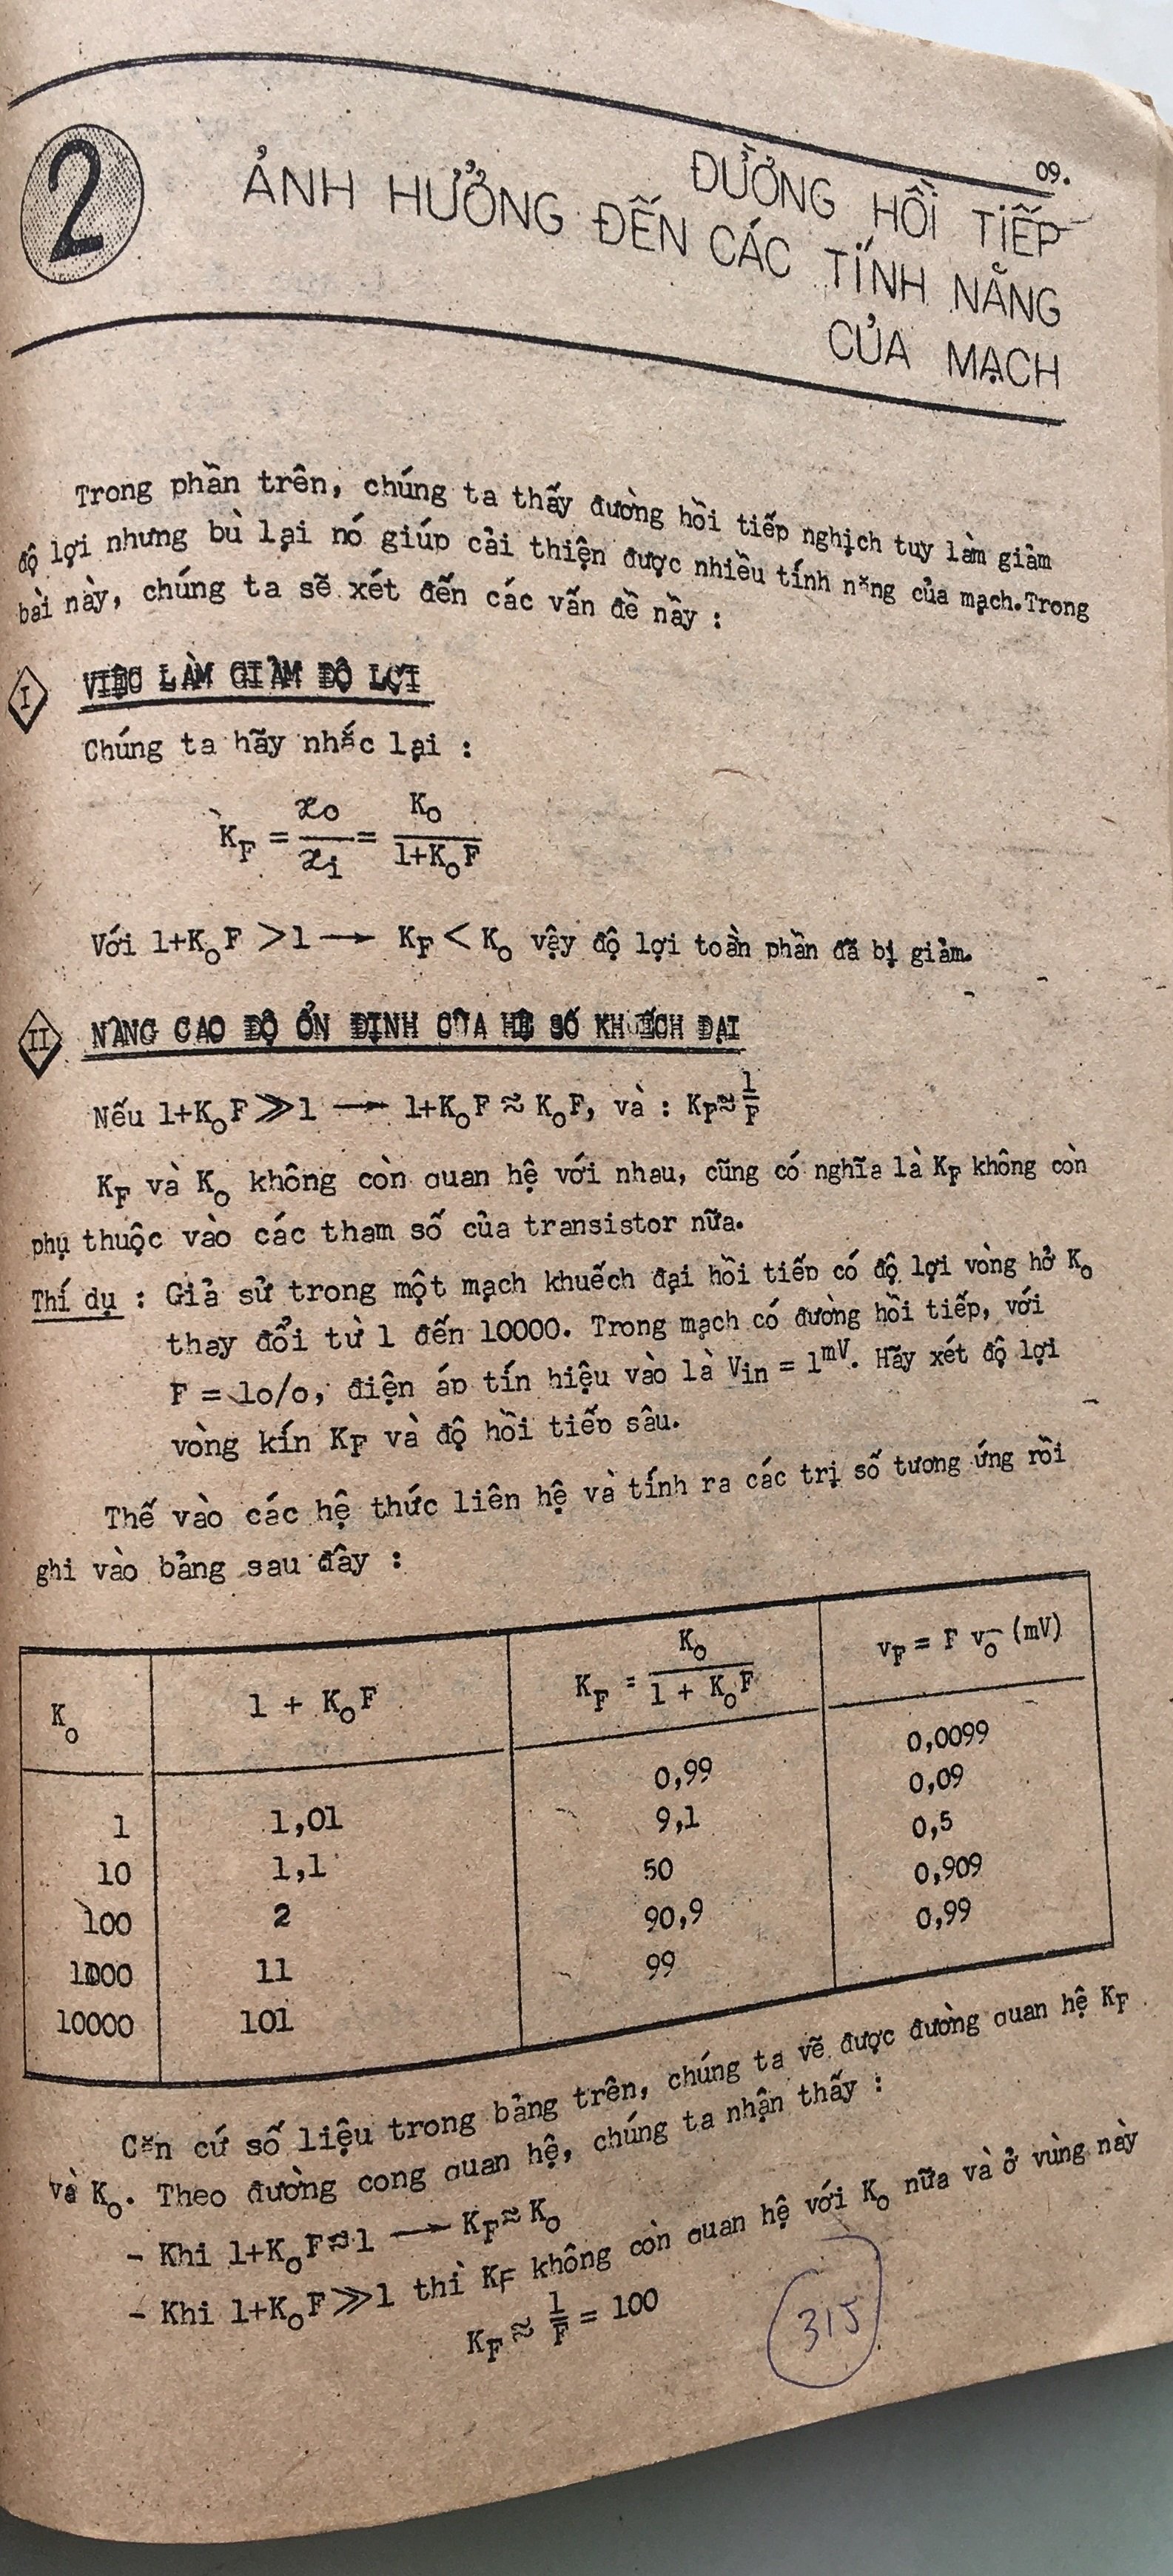 09.
2
ĐƯỜNG HỒI TIẾP
ẢNH HƯỞNG ĐẾN CÁC TÍNH NĂNG
CỦA MẠCH
Trong phần trên, chúng ta thấy đường hồi tiếp nghịch tuy làm giảm
độ lợi nhưng bù lại nó giúp cải thiện được nhiều tính năng của mạch. Trong
bài này, chúng ta sẽ xét đến các vấn đề nầy :
I VIỆC LÀM GIẢM ĐỘ LỢI
Chúng ta hãy nhắc lại :
K_F = x_o/x_i = K_o/(1+K_oF)
Với 1+K_oF > 1 → K_F < K_o vậy độ lợi toàn phần đã bị giảm.
II NÂNG CAO ĐỘ ỔN ĐỊNH CỦA HỆ SỐ KHUẾCH ĐẠI
Nếu 1+K_oF ≫ 1 → 1+K_oF ≈ K_oF, và : K_F ≈ 1/F
K_F và K_o không còn quan hệ với nhau, cũng có nghĩa là K_F không còn
phụ thuộc vào các tham số của transistor nữa.
Thí dụ : Giả sử trong một mạch khuếch đại hồi tiếp có độ lợi vòng hở K_o
thay đổi từ 1 đến 10000. Trong mạch có đường hồi tiếp, với
F = 1o/o, điện áp tín hiệu vào là V_in = 1^mV. Hãy xét độ lợi
vòng kín K_F và độ hồi tiếp sâu.
Thế vào các hệ thức liên hệ và tính ra các trị số tương ứng rồi
ghi vào bảng sau đây :
K_o 1 + K_oF K_F = K_o/(1 + K_oF) v_F = F v_o (mV)
1 1,01 0,99 0,0099
10 1,1 9,1 0,09
100 2 50 0,5
1000 11 90,9 0,909
10000 101 99 0,99
Căn cứ số liệu trong bảng trên, chúng ta vẽ được đường quan hệ K_F
và K_o. Theo đường cong quan hệ, chúng ta nhận thấy :
- Khi 1+K_oF ≈ 1 → K_F ≈ K_o
- Khi 1+K_oF ≫ 1 thì K_F không còn quan hệ với K_o nữa và ở vùng này
K_F ≈ 1/F = 100
315